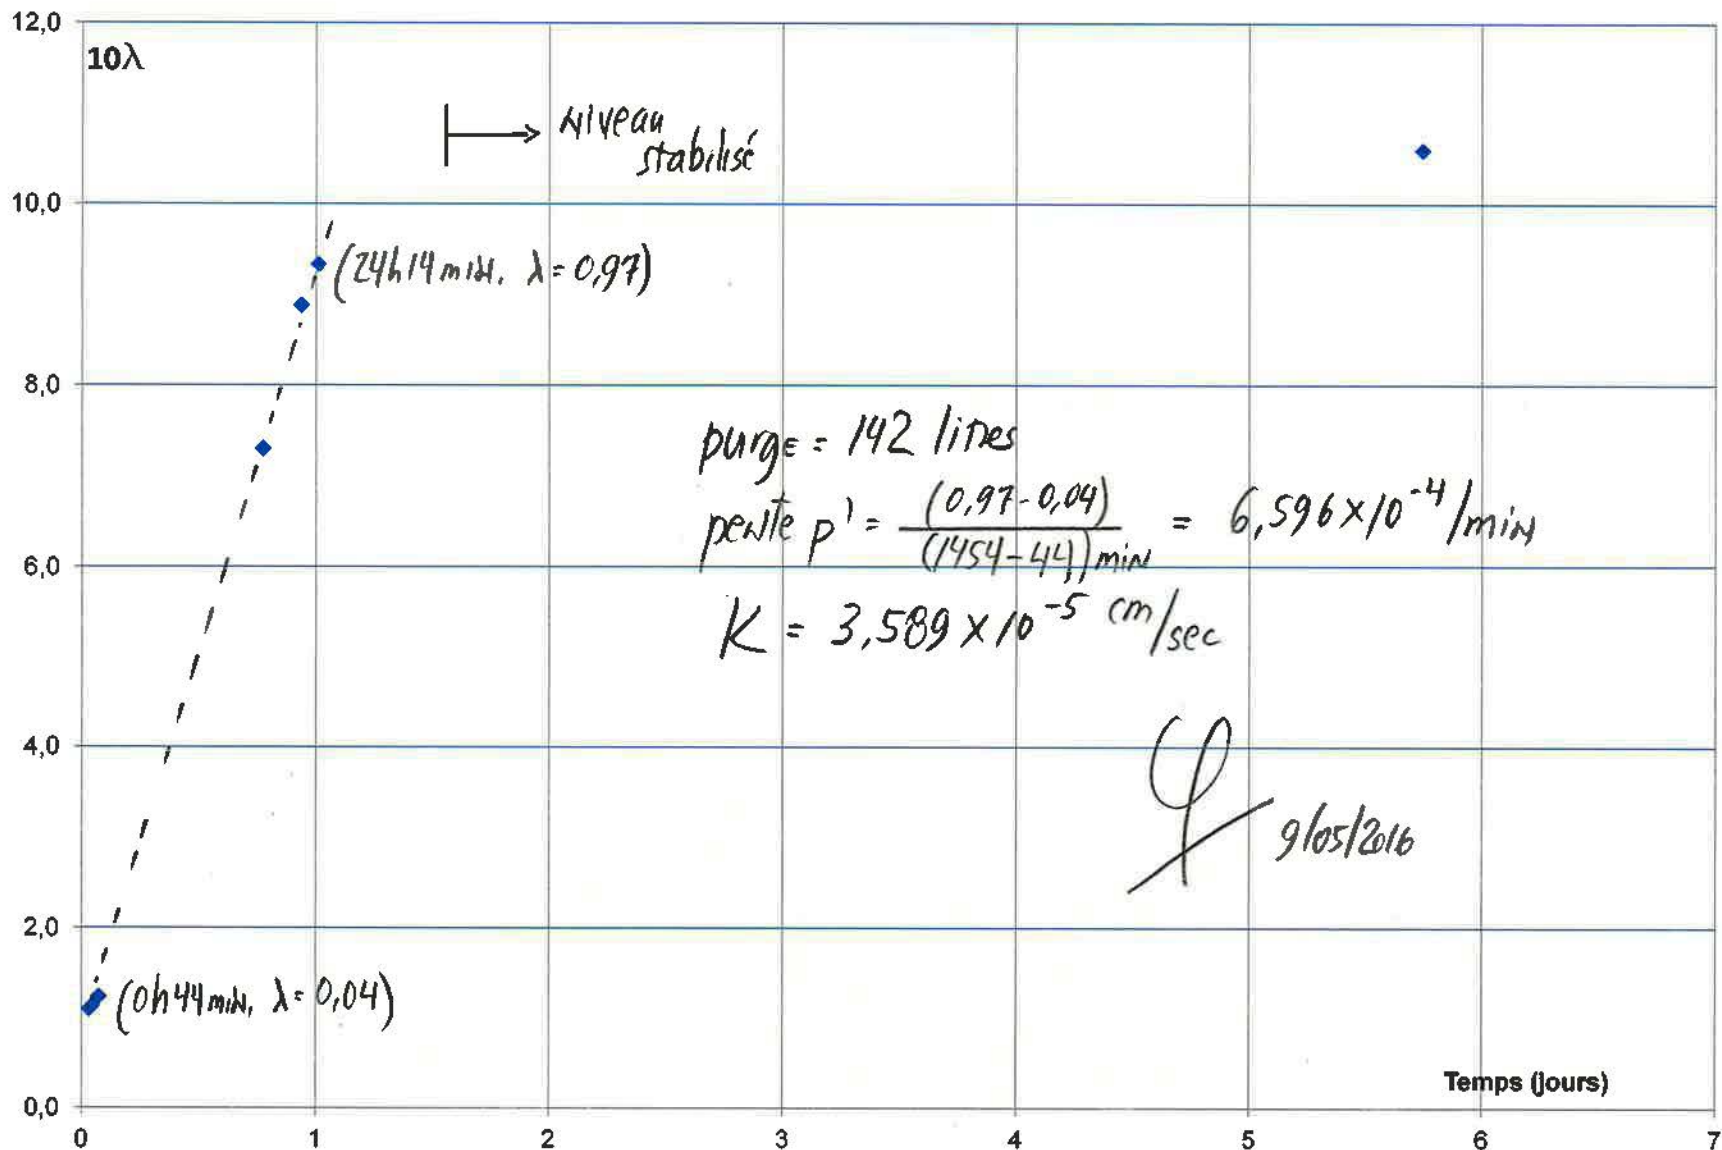 12,0
10λ
Niveau
stabilisé
10,0
(24h14min. λ = 0,97)
8,0
purge = 142 litres
pente p' = (0,97-0,04) / (1454-44) min = 6,596 x 10^-4 / min
6,0
K = 3,589 x 10^-5 cm/sec
4,0
9/05/2016
2,0
(0h44min. λ = 0,04)
Temps (jours)
0,0
0 1 2 3 4 5 6 7